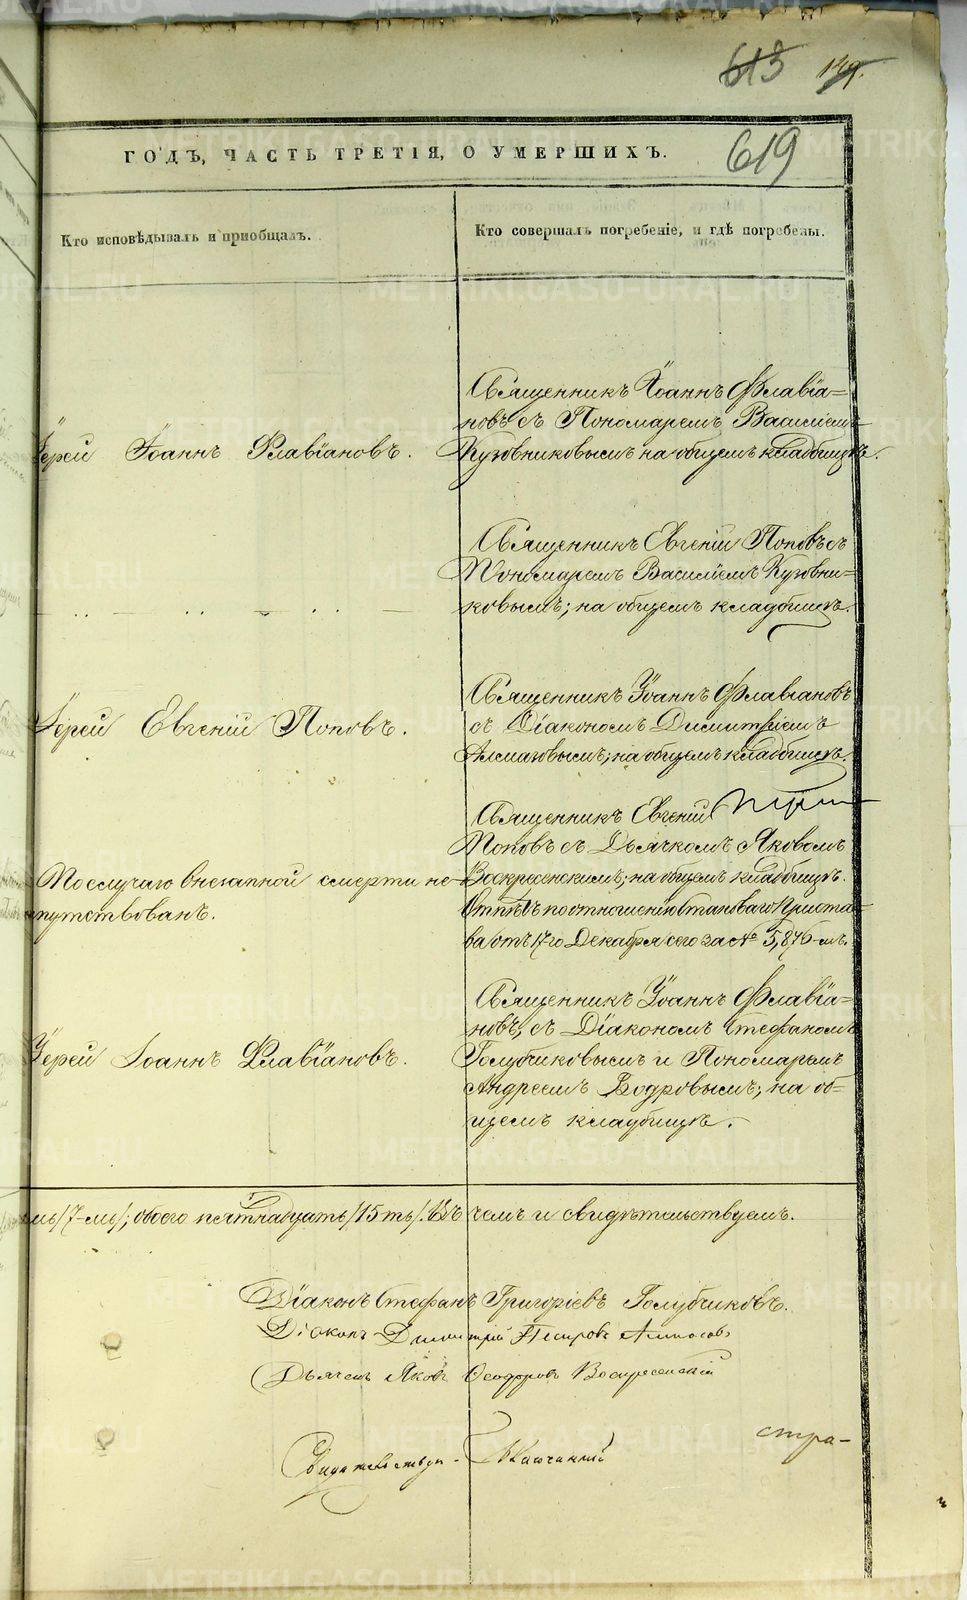 613 149.
619
ГОДЪ, ЧАСТЬ ТРЕТІЯ, О УМЕРШИХЪ.
Кто исповѣдывалъ и пріобщалъ.
Кто совершалъ погребеніе, и гдѣ погребены.
Іерей Іоаннъ Флавіановъ.
Священникъ Іоаннъ Флавіа=
новъ съ Пономаремъ Василіемъ
Кузовниковымъ на общемъ кладбищѣ.
Священникъ Евгеній Поповъ съ
Пономаремъ Василіемъ Кузовни=
ковымъ; на общемъ кладбищѣ.
Іерей Евгеній Поповъ.
Священникъ Іоаннъ Флавіановъ
съ Діакономъ Димитріемъ
Алмазовымъ; на общемъ кладбищѣ.
По случаю внезапной смерти не
путствованъ.
Священникъ Евгеній
Поповъ съ Дьячкомъ Яковомъ
Воскресенскимъ; на общемъ кладбищѣ.
Отпѣтъ по отношенію Становаго Приста=
ва отъ 17го Декабря сего за № 5,876-мъ.
Іерей Іоаннъ Флавіановъ.
Священникъ Іоаннъ Флавіа=
новъ, съ Діакономъ Стефаномъ
Голубчиковымъ и Пономаремъ
Андреемъ Бодровымъ; на об=
щемъ кладбищѣ.
мь /7-мь/; обоего пятнадцать /15ть/. Въ чемъ и свидѣтельствуемъ.
Діаконъ Стефанъ Григоріевъ Голубчиковъ.
Діаконъ Димитрій Петровъ Алмазовъ
Дьячекъ Яковъ Ѳеодоровъ Воскресенскій
стра-
METRIKI.GASO-URAL.RU